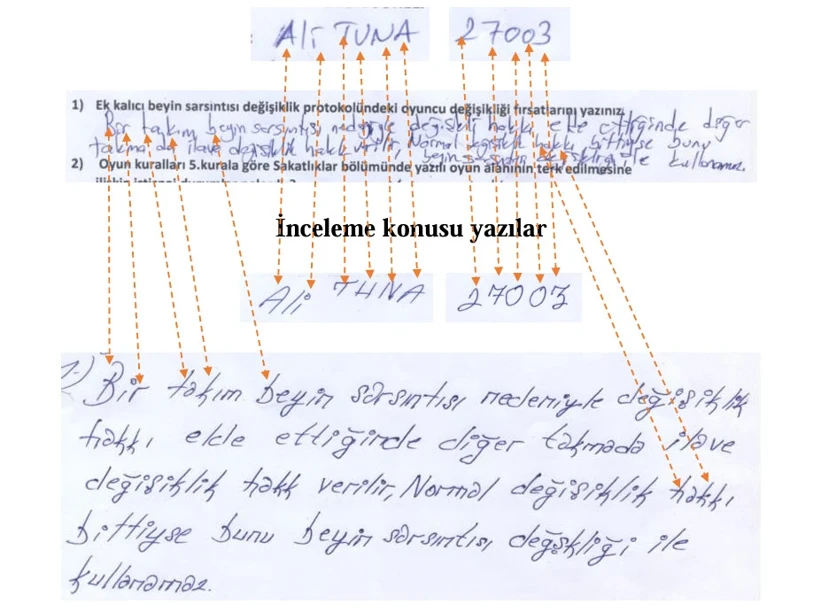 Ali TUNA 27003
1) Ek kalıcı beyin sarsıntısı değişiklik protokolündeki oyuncu değişikliği fırsatlarını yazınız.
Bir takım beyin sarsıntısı nedeniyle değişiklik hakkı elde ettiğinde diğer
takıma da ilave değişiklik hakkı verilir, Normal değişiklik hakkı bittiyse bunu
beyin sarsıntısı değişikliği ile kullanamaz.
2) Oyun kuralları 5.kurala göre Sakatlıklar bölümünde yazılı oyun alanının terk edilmesine
İnceleme konusu yazılar
Ali TUNA 27003
1-) Bir takım beyin sarsıntısı nedeniyle değişiklik
hakkı elde ettiğinde diğer takmada ilave
değişiklik hakk verilir, Normal değişiklik hakkı
bittiyse bunu beyin sarsıntısı değşkliği ile
kullanamaz.